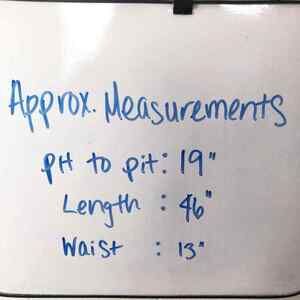 Approx. Measurements
pit to pit: 19"
Length : 46"
Waist : 13"